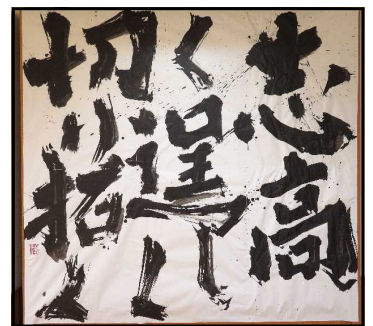 志高
く逞
切り拓く